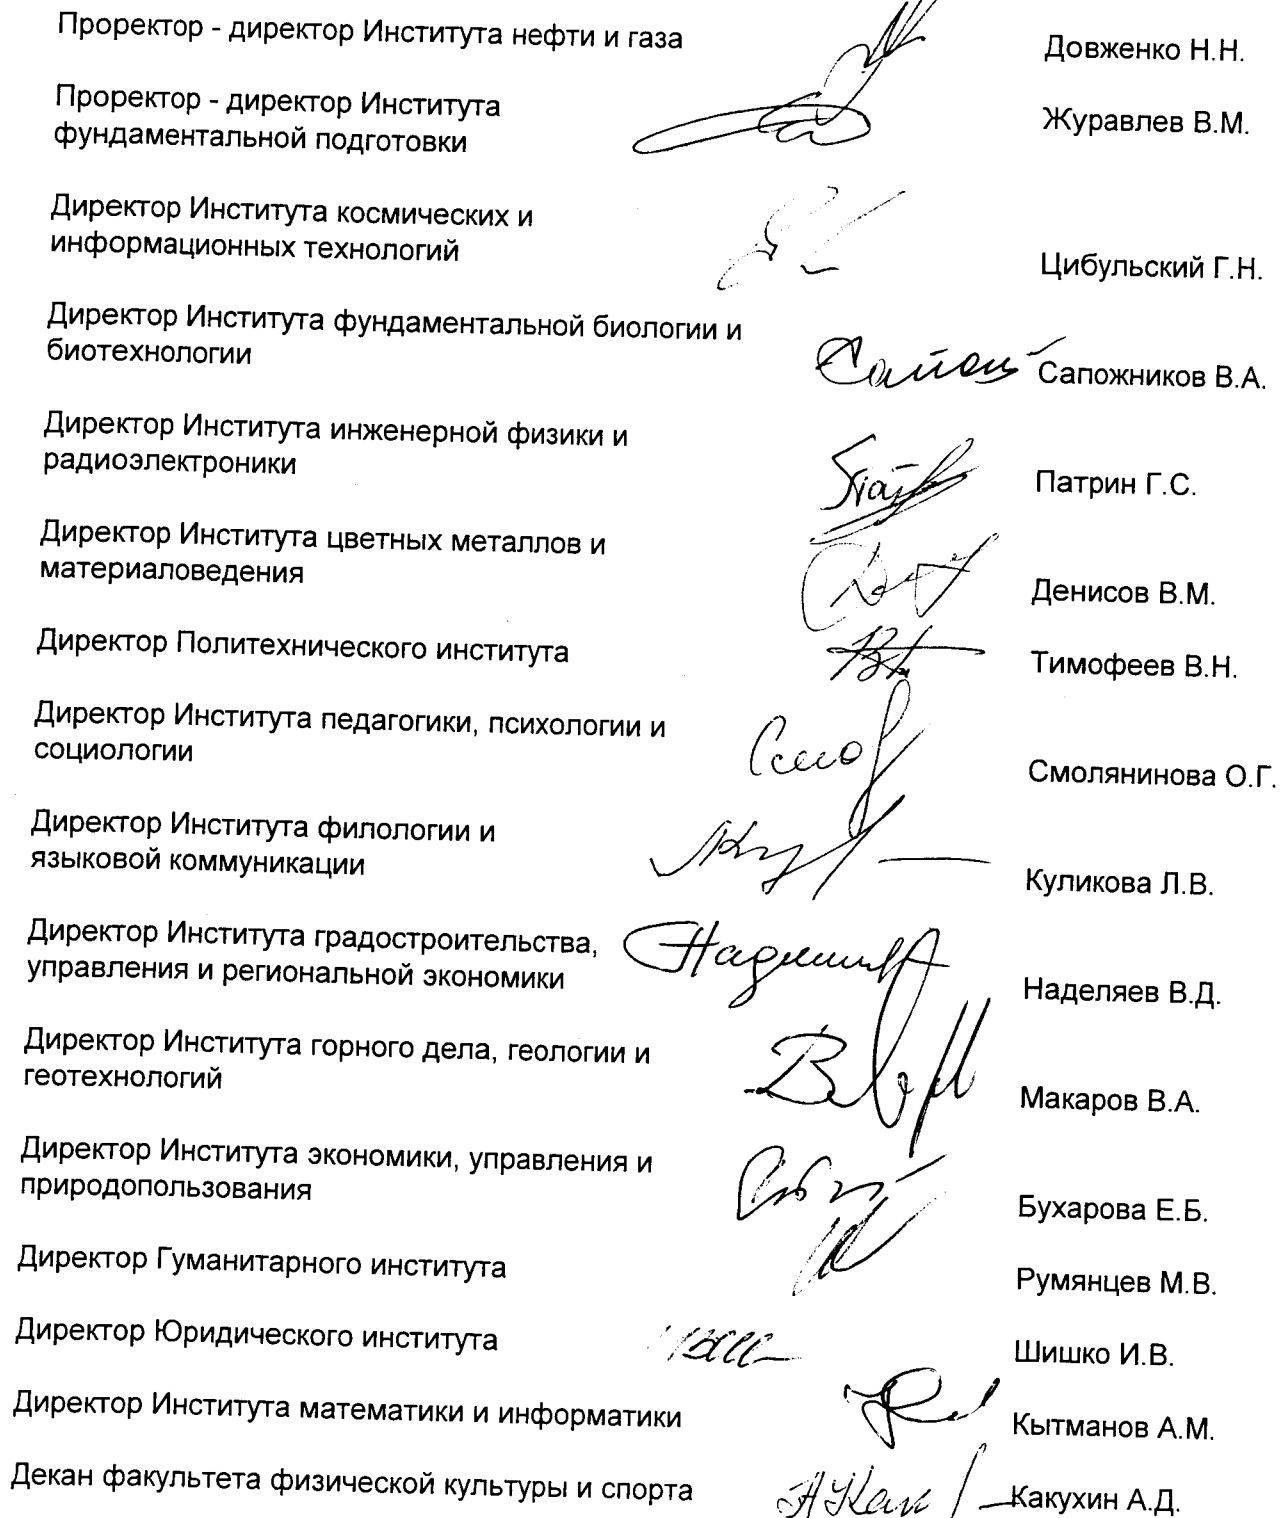 Проректор - директор Института нефти и газа
Довженко Н.Н.
Проректор - директор Института
фундаментальной подготовки
Журавлев В.М.
Директор Института космических и
информационных технологий
Цибульский Г.Н.
Директор Института фундаментальной биологии и
биотехнологии
Сапожников В.А.
Директор Института инженерной физики и
радиоэлектроники
Патрин Г.С.
Директор Института цветных металлов и
материаловедения
Денисов В.М.
Директор Политехнического института
Тимофеев В.Н.
Директор Института педагогики, психологии и
социологии
Смолянинова О.Г.
Директор Института филологии и
языковой коммуникации
Куликова Л.В.
Директор Института градостроительства,
управления и региональной экономики
Наделяев В.Д.
Директор Института горного дела, геологии и
геотехнологий
Макаров В.А.
Директор Института экономики, управления и
природопользования
Бухарова Е.Б.
Директор Гуманитарного института
Румянцев М.В.
Директор Юридического института
Шишко И.В.
Директор Института математики и информатики
Кытманов А.М.
Декан факультета физической культуры и спорта
Какухин А.Д.